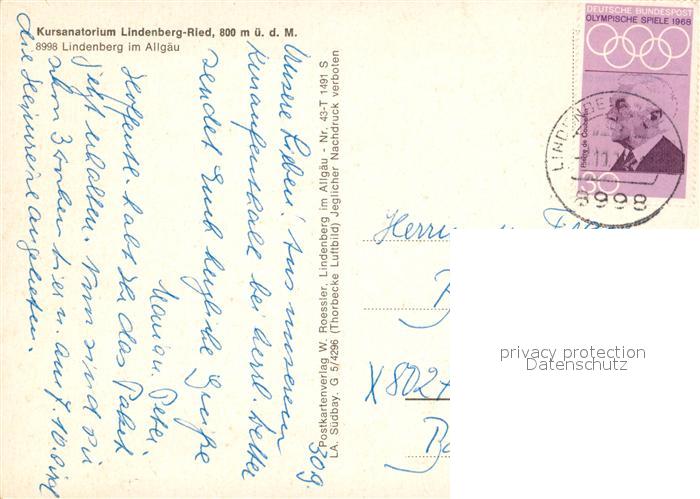 Kursanatorium Lindenberg-Ried, 800 m ü. d. M.
8998 Lindenberg im Allgäu
Unsere Lieben! Aus unserem
Kuraufenthalt bei herrl. Wetter
sendet Euch herzliche Grüße
Peter
30g.
Hoffentl. habt Ihr das Paket
jetzt erhalten. Nun sind wir
schon 3 Wochen hier u. am 7.10. wird
die Heimreise angetreten.
Postkartenverlag W. Roessler, Lindenberg im Allgäu - Nr. 43-T 1491 S
LA. Südbay. G 5/4296 (Thorbecke Luftbild) Jeglicher Nachdruck verboten
DEUTSCHE BUNDESPOST
OLYMPISCHE SPIELE 1968
Pierre de Coubertin
30
8998
X 8027
privacy protection
Datenschutz